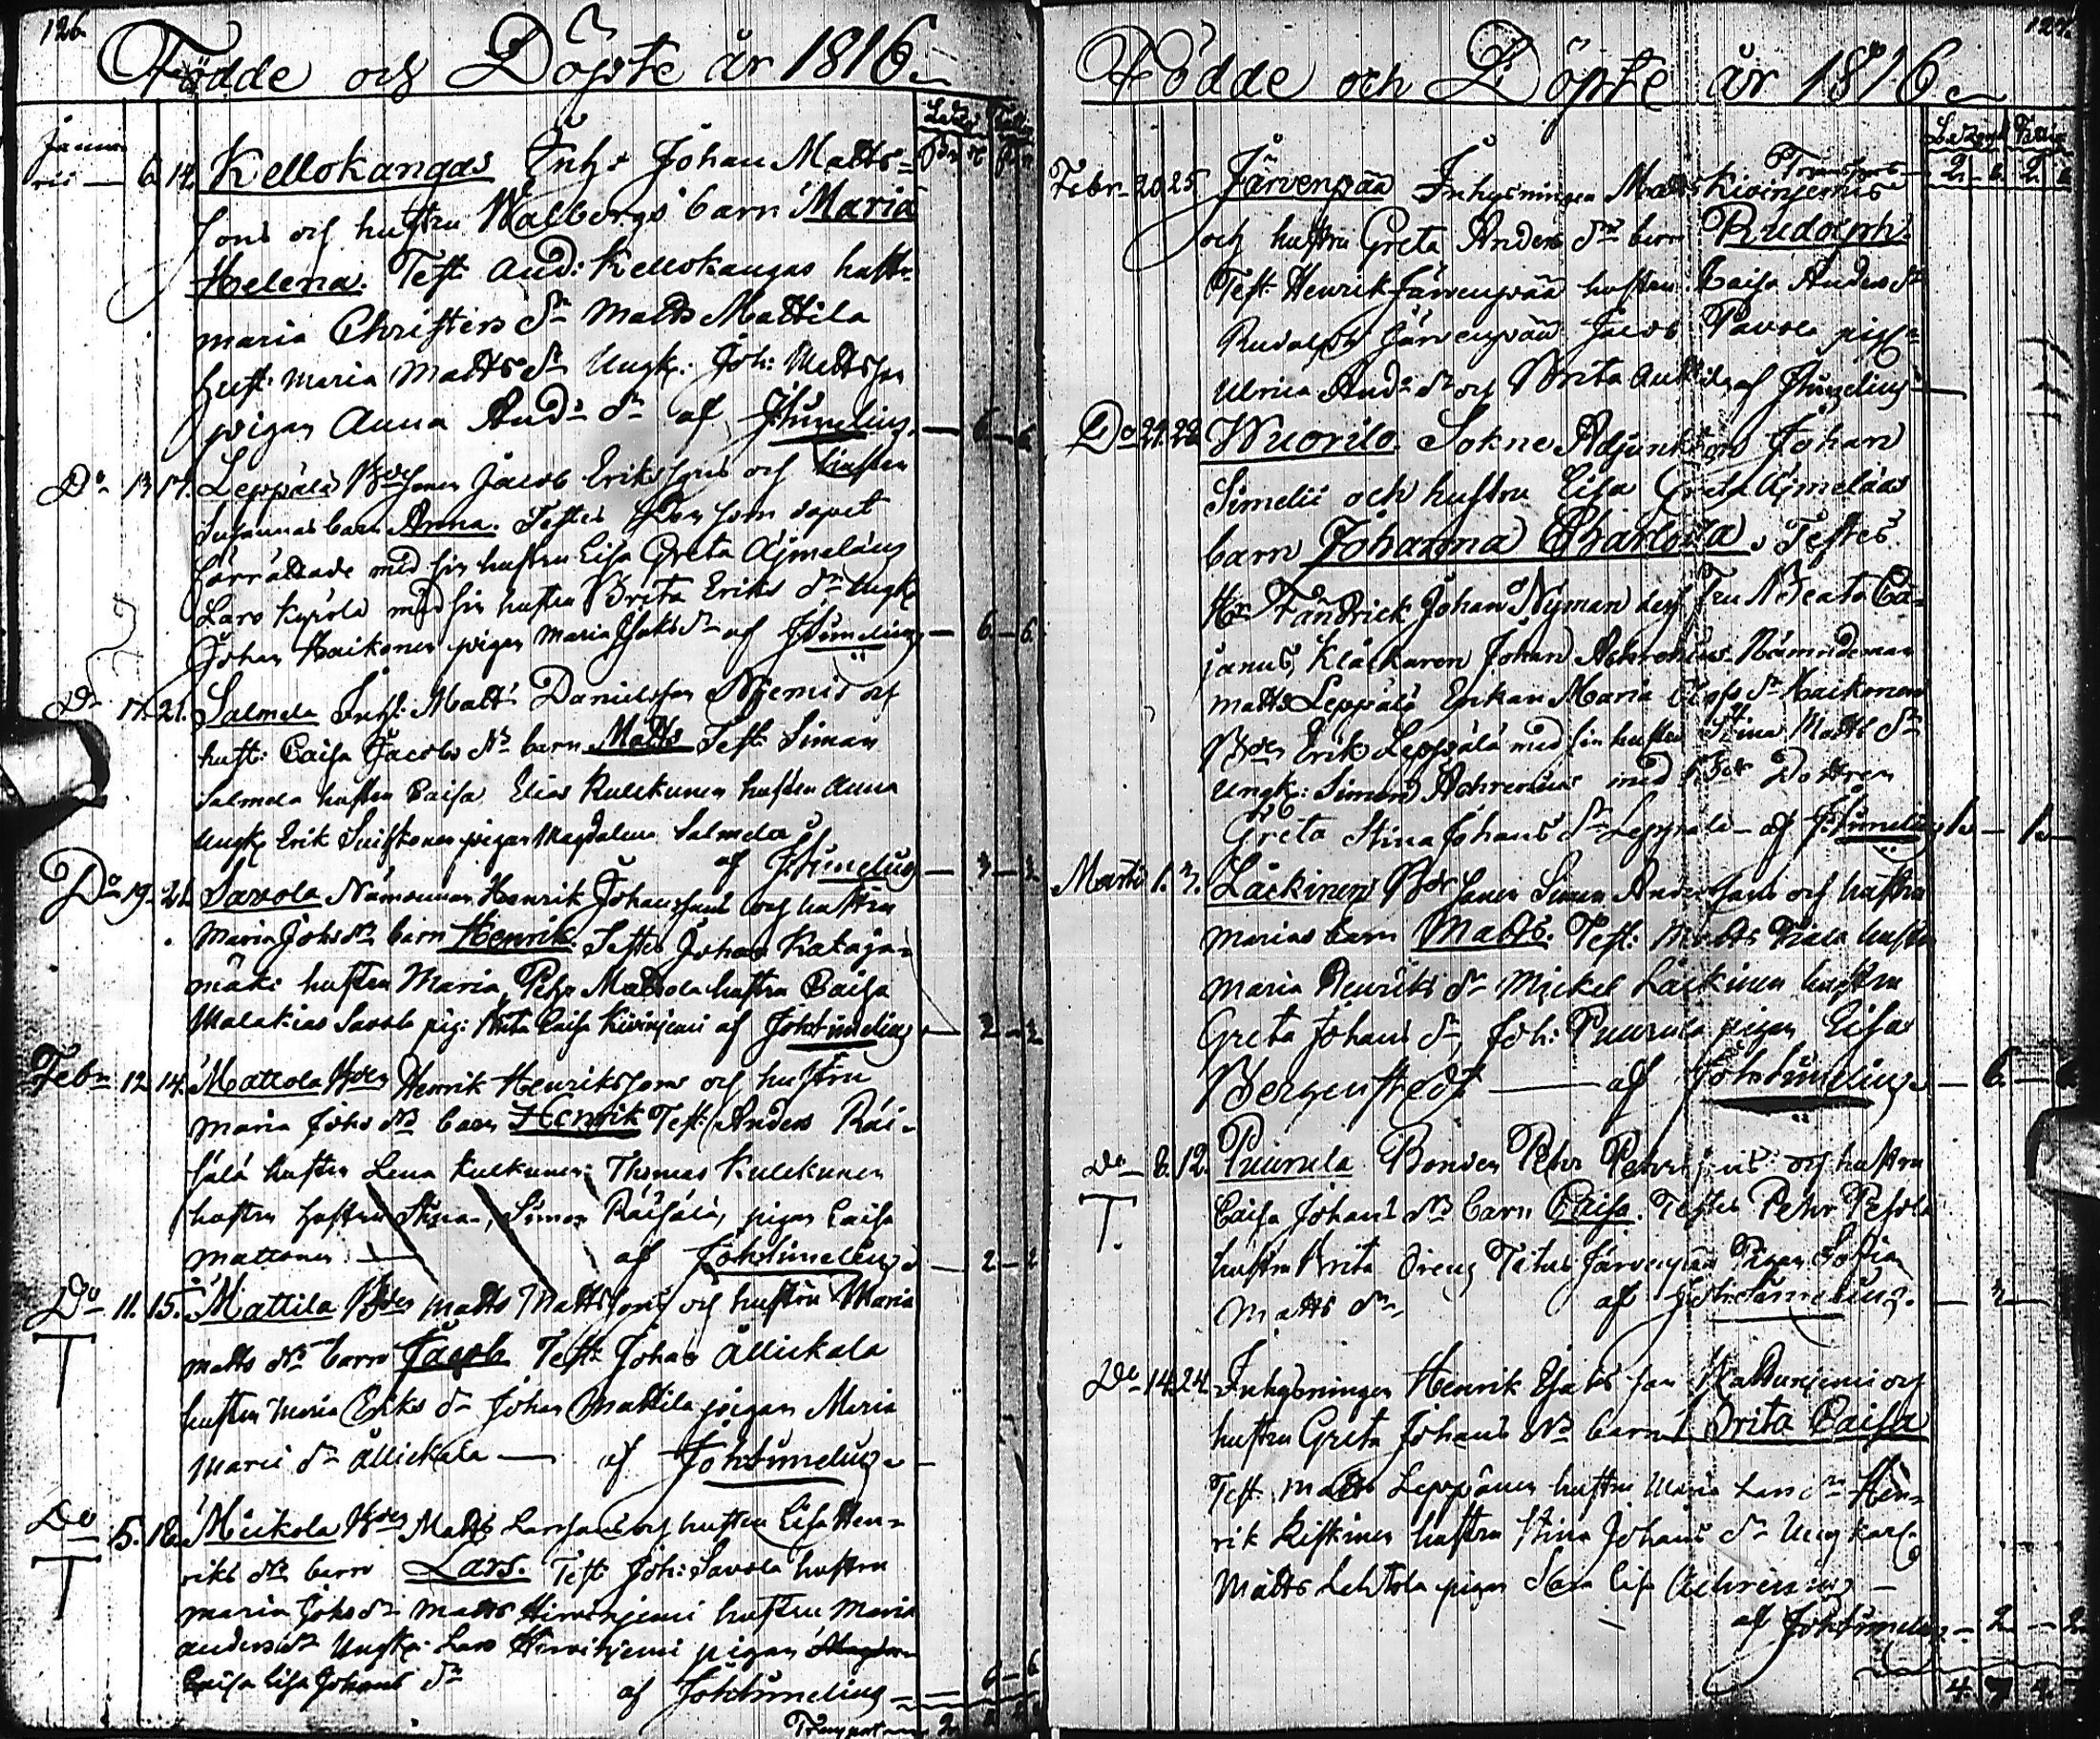 126.
Födde och Döpte år 1816.
Janua
rii — 6. 14. Kellokangas Inhs Johan Matts=
sons och hustru Walborgs barn Maria
Helena. Test. And: Kellokangas hustr.
maria Christers dr Matts Mattila
hust: Maria Matts dr Ungk: Joh: Mattsson
pigan Anna And: dr af JSimelius. — 6 — 6
Do 13 17. Leppälä Bdesonen Jacob Erikssons och hustru
Susannas barn Anna. Testes Den som dopet
förrättade med sin hustru Lisa Greta Äjmeläus
Lars med sin hustru Brita Eriks dr Ungk
Johan Haikonen pigan Maria Isaks dr af JSimelius — 6 — 6
Do 17. 21. Salmela Inhs: Matts Danielsson Niemis och
hust: Caisa Jacobs dr barn Matts Test. Simon
Salmela hustru Caisa Elias Kulckunen hustru Anna
Ungk Erik pigan Magdalena Salmela
af JSimelius — 3 — 3
Do 19. 21. Savola Nämdeman Henrik Johanssons och hustru
Maria Johs dr barn Henrik. Testes Johan Kataja=
mäki hustru Maria, Pehr Mattola hustru Caisa
Malakias Savola pig: Brita Caisa Kivinjemi af JohSimelius — 2 — 2
Febr 12 14. Mattola Bden Henrik Henrikssons och hustru
Maria Johs dr barn Henrik Test: Anders Räi=
sälä hustru Lena Kulckunen Thomas Kulckunen
hustru hustru Stina, Simon Räisälä, pigan Caisa
Mattonen — af JohSimelius — 2 — 2
Do 11. 15. Mattila Bden Matts Mattssons och hustru Maria
T
Matts dr barn Jacob Test: Johan Ällickala
hustru Maria Eriks dr Johan Mattila pigan Maria
Mari dr Ällickala — af JohSimelius —
Do 15. 18. Mickola Bden Matts Larssons och hustru Lisa Hen=
T
riks dr barn Lars. Test: Joh: Savola hustru
Maria Johs dr Matts Hirvinjemi hustru Maria
Anders dr Ungk: Lars Hirvinjemi pigan
Caisa Lisa Johans dr af JohSimelius — 6 — 6
Transport 2
127.
Födde och Döpte år 1816.
Transport — 2 — 6 2 6
Febr 20 25 Järvenpää Inhysningen Matts Kivinjemis
och hustru Greta Anders drs barn Rudolph.
Test. Henrik Järvenpää hustru Caisa Anders dr
Rudolph Järvenpää Jacob Pavola pig
Ulrica And: dr och Brita af JSimelius —
Do 21. 22 Wuorilo. Sokne Adjunkten Johan
Simelii och hustru Lisa Greta Äjmeläas
barn Johanna Charlotta. Testes.
Hr Fändrick Johan Nyman dess Fru Beata Ca-
janus, Klåckaren Johan Achrenius Nämndeman
Matts Leppälä Enkan Maria Olofs dr Haikonen
Bden Erik Leppälä med sin hustru Stina Matts dr
Ungk: Simon Achrenius med Bde Dottren
Greta Stina Johans dr Leppälä — af JSimelius 1. — 1. —
Martii 1. 3. Läckinen Bdesonen Simon Anderssons och hustru
Marias barn Matts. Test: Matts hustru
Maria Henriks dr Mickel Läckinen hustru
Greta Johans dr, Joh: Puurula pigan Lisa
Bergenstedt — af JohSimelius — 6 — 6
Do 8. 12. Puurula Bonden Pehr Pehrssons och hustru
T.
Caisa Johans drs barn Caisa. Testes Pehr Pesola
hustru Brita Dreng Titus Järvenpää Pigan Sofia
Matts dr af JohSimelius. — 3 —
Do 14 24. Inhysningen Henrik Isaksson och
hustru Greta Johans drs barn Brita Caisa
Test. Matts Leppänen hustru Maria Lars dr Hen=
rik Kiskinen hustru Stina Johans dr Ungkarl.
Matts Lehtola pigan Sara Lisa Achrenius —
af JohSimelius — 2 — 2
4. 7 4.